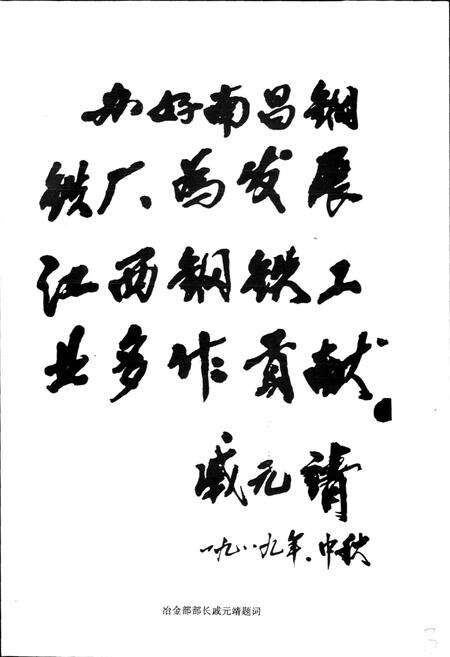 办好南昌钢
铁厂、为发展
江西钢铁工
业多作贡献。
戚元靖
一九八九年.中秋
冶金部部长戚元靖题词